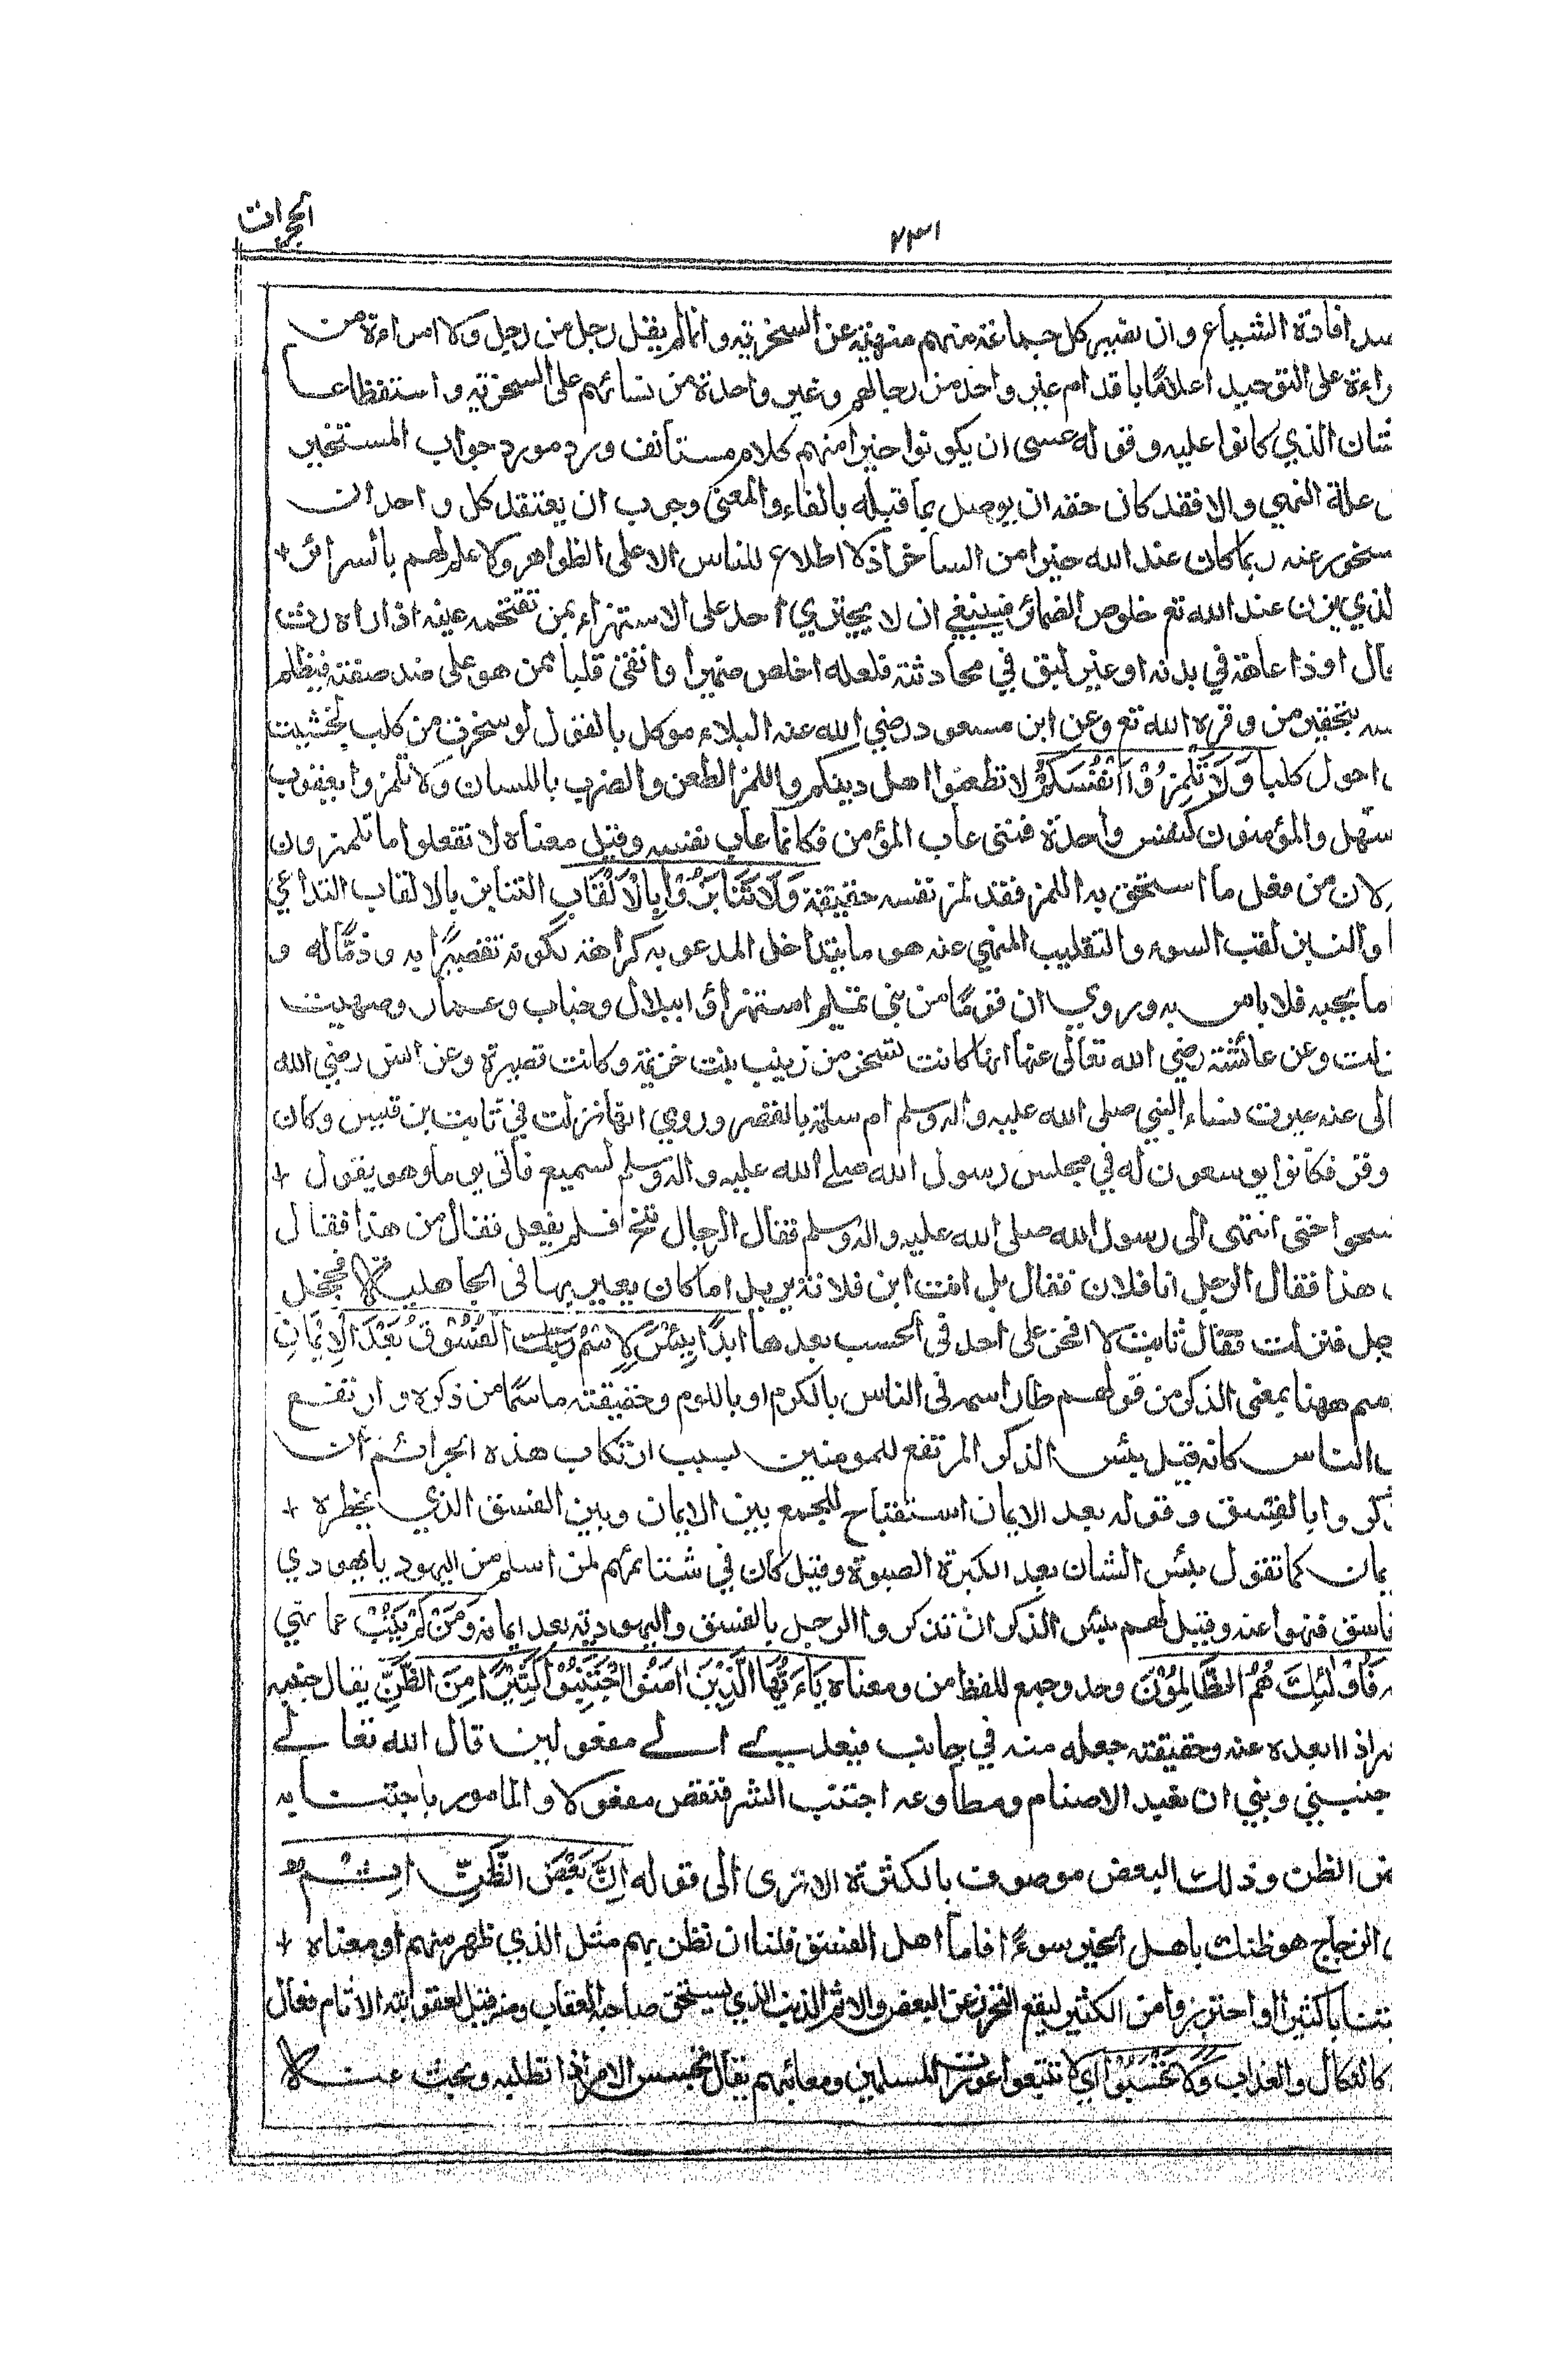 الحجرات
٢٣١
افادة الشياع وان تصير كل جماعة منهم منهية عن السخرية وانما لم يقل رجل من رجل ولا امراءة من
على التوحيد اعلاما باقدام غير واحد من رجالهم وغير واحدة من نسائهم على السخرية واستفظاعا
الذي كانوا عليه وقوله عسى ان يكونوا خيرا منهم كلام مستانف ورد مورد جواب المستخبر
علة النهي والا فقد كان حقه ان يوصل بما قبله بالفاء والمعنى وجوب ان يعتقد كل واحد ان
عنه ربما كان عند الله خيرا من الساخر اذ لا اطلاع للناس الا على الظواهر ولا علم لهم بالسرائر +
يزن عند الله تع خلوص الضمائر فينبغي ان لا يجتري احد على الاستهزاء بمن تقتحمه عينه اذا راه رث
او ذا عاهة في بدنه او غير لبق في محادثته فلعله اخلص ضميرا وانقى قلبا ممن هو على ضد صفته فيظلم
بتحقير من وقره الله تع وعن ابن مسعود رضي الله عنه البلاء موكل بالقول لو سخرت من كلب لخشيت
احول كلبا وَلَا تَلْمِزُوْۤا اَنْفُسَكُمْ لا تطعنوا اهل دينكم واللمز الطعن والضرب باللسان ولا تلمزوا يعقوب
والمؤمنون كنفس واحدة فمتى عاب المؤمن فكانما عاب نفسه وقيل معناه لا تفعلوا ما تلمزون
لان من فعل ما استحق به اللمز فقد لمز نفسه حقيقة وَلَا تَنَابَزُوْا بِالْاَلْقَابِ التنابز بالالقاب التداعي
والنبز لقب السوء والتلقيب المنهي عنه هو ما يتداخل المدعو به كراهة لكونه تقصيرًا به وذمًّا له و
ما يحبه فلا باس به وروي ان قومًا من بني تميم استهزاؤا ببلال وخباب وعمار وصهيب
وعن عائشة رضي الله تعالى عنها انها كانت تسخر من زينب بنت خزيمة وكانت قصيرة وعن انس رضي الله
عنه عيرت نساء النبي صلى الله عليه واله وسلم ام سلمة بالقصر وروي انها نزلت في ثابت بن قيس وكان
وقر فكانوا يوسعون له في مجلس رسول الله صلى الله عليه واله وسلم ليسمع فاتى يوما وهو يقول +
حتى انتهى الى رسول الله صلى الله عليه واله وسلم فقال لرجال تنح فلم يفعل فقال من هذا فقال
هذا فقال الرجل انا فلان فقال بل انت ابن فلانة يريد اما كان يعير بها في الجاهلية فخجل
فنزلت فقال ثابت لا افخر على احد في الحسب بعدها ابدًا بِئْسَ الِاسْمُ الْفُسُوْقُ بَعْدَ الْاِيْمَانِ
ههنا بمعنى الذكر من قولهم طار اسمه في الناس بالكرم او باللوم وحقيقته ما سما من ذكره وارتفع
الناس كانه قيل بئس الذكر المرتفع للمومنين بسبب ارتكاب هذه الجرائم ان
بالفسق وقوله بعد الايمان استقباح للجمع بين الايمان وبين الفسق الذي يحظره +
كما تقول بئس الشان بعد الكبرة الصبوة وقيل كان في شتائمهم لمن اسلم من اليهود يا يهودي
فنهوا عنه وقيل لهم بئس الذكر ان تذكروا الرجل بالفسق واليهودية بعد ايمانه وَمَنْ لَّمْ يَتُبْ عما نهي
فَاُولٰٓئِكَ هُمُ الظَّالِمُوْنَ وحد وجمع للفظ من ومعناه يَاَيُّهَا الَّذِيْنَ اٰمَنُوا اجْتَنِبُوْا كَثِيْرًا مِنَ الظَّنِّ يقال جنبه
اذا ابعده عنه وحقيقته جعله منه في جانب فيعدى الى مفعولين قال الله تعالى
وبني ان نعبد الاصنام ومطاوعه اجتنب الشر فتنقص مفعولا والمامور باجتنابه
الظن وذلك البعض موصوف بالكثرة الا ترى الى قوله اِنَّ بَعْضَ الظَّنِّ اِثْمٌ
الزجاج هو ظنك باهل الخير سوءًا فاما اهل الفسق فلنا ان نظن بهم مثل الذي ظهر منهم او معناه +
كثيرا او احترزوا من الكثير ليقع التحرز عن البعض والاثم الذنب الذي يستحق صاحبه العقاب ومنه قيل لعقوبته الاثام فعال
كالنكال والعذاب وَلَا تَجَسَّسُوْا اي لا تتبعوا عورات المسلمين ومعائبهم يقال تجسس الامر اذا تطلبه وبحث عنه